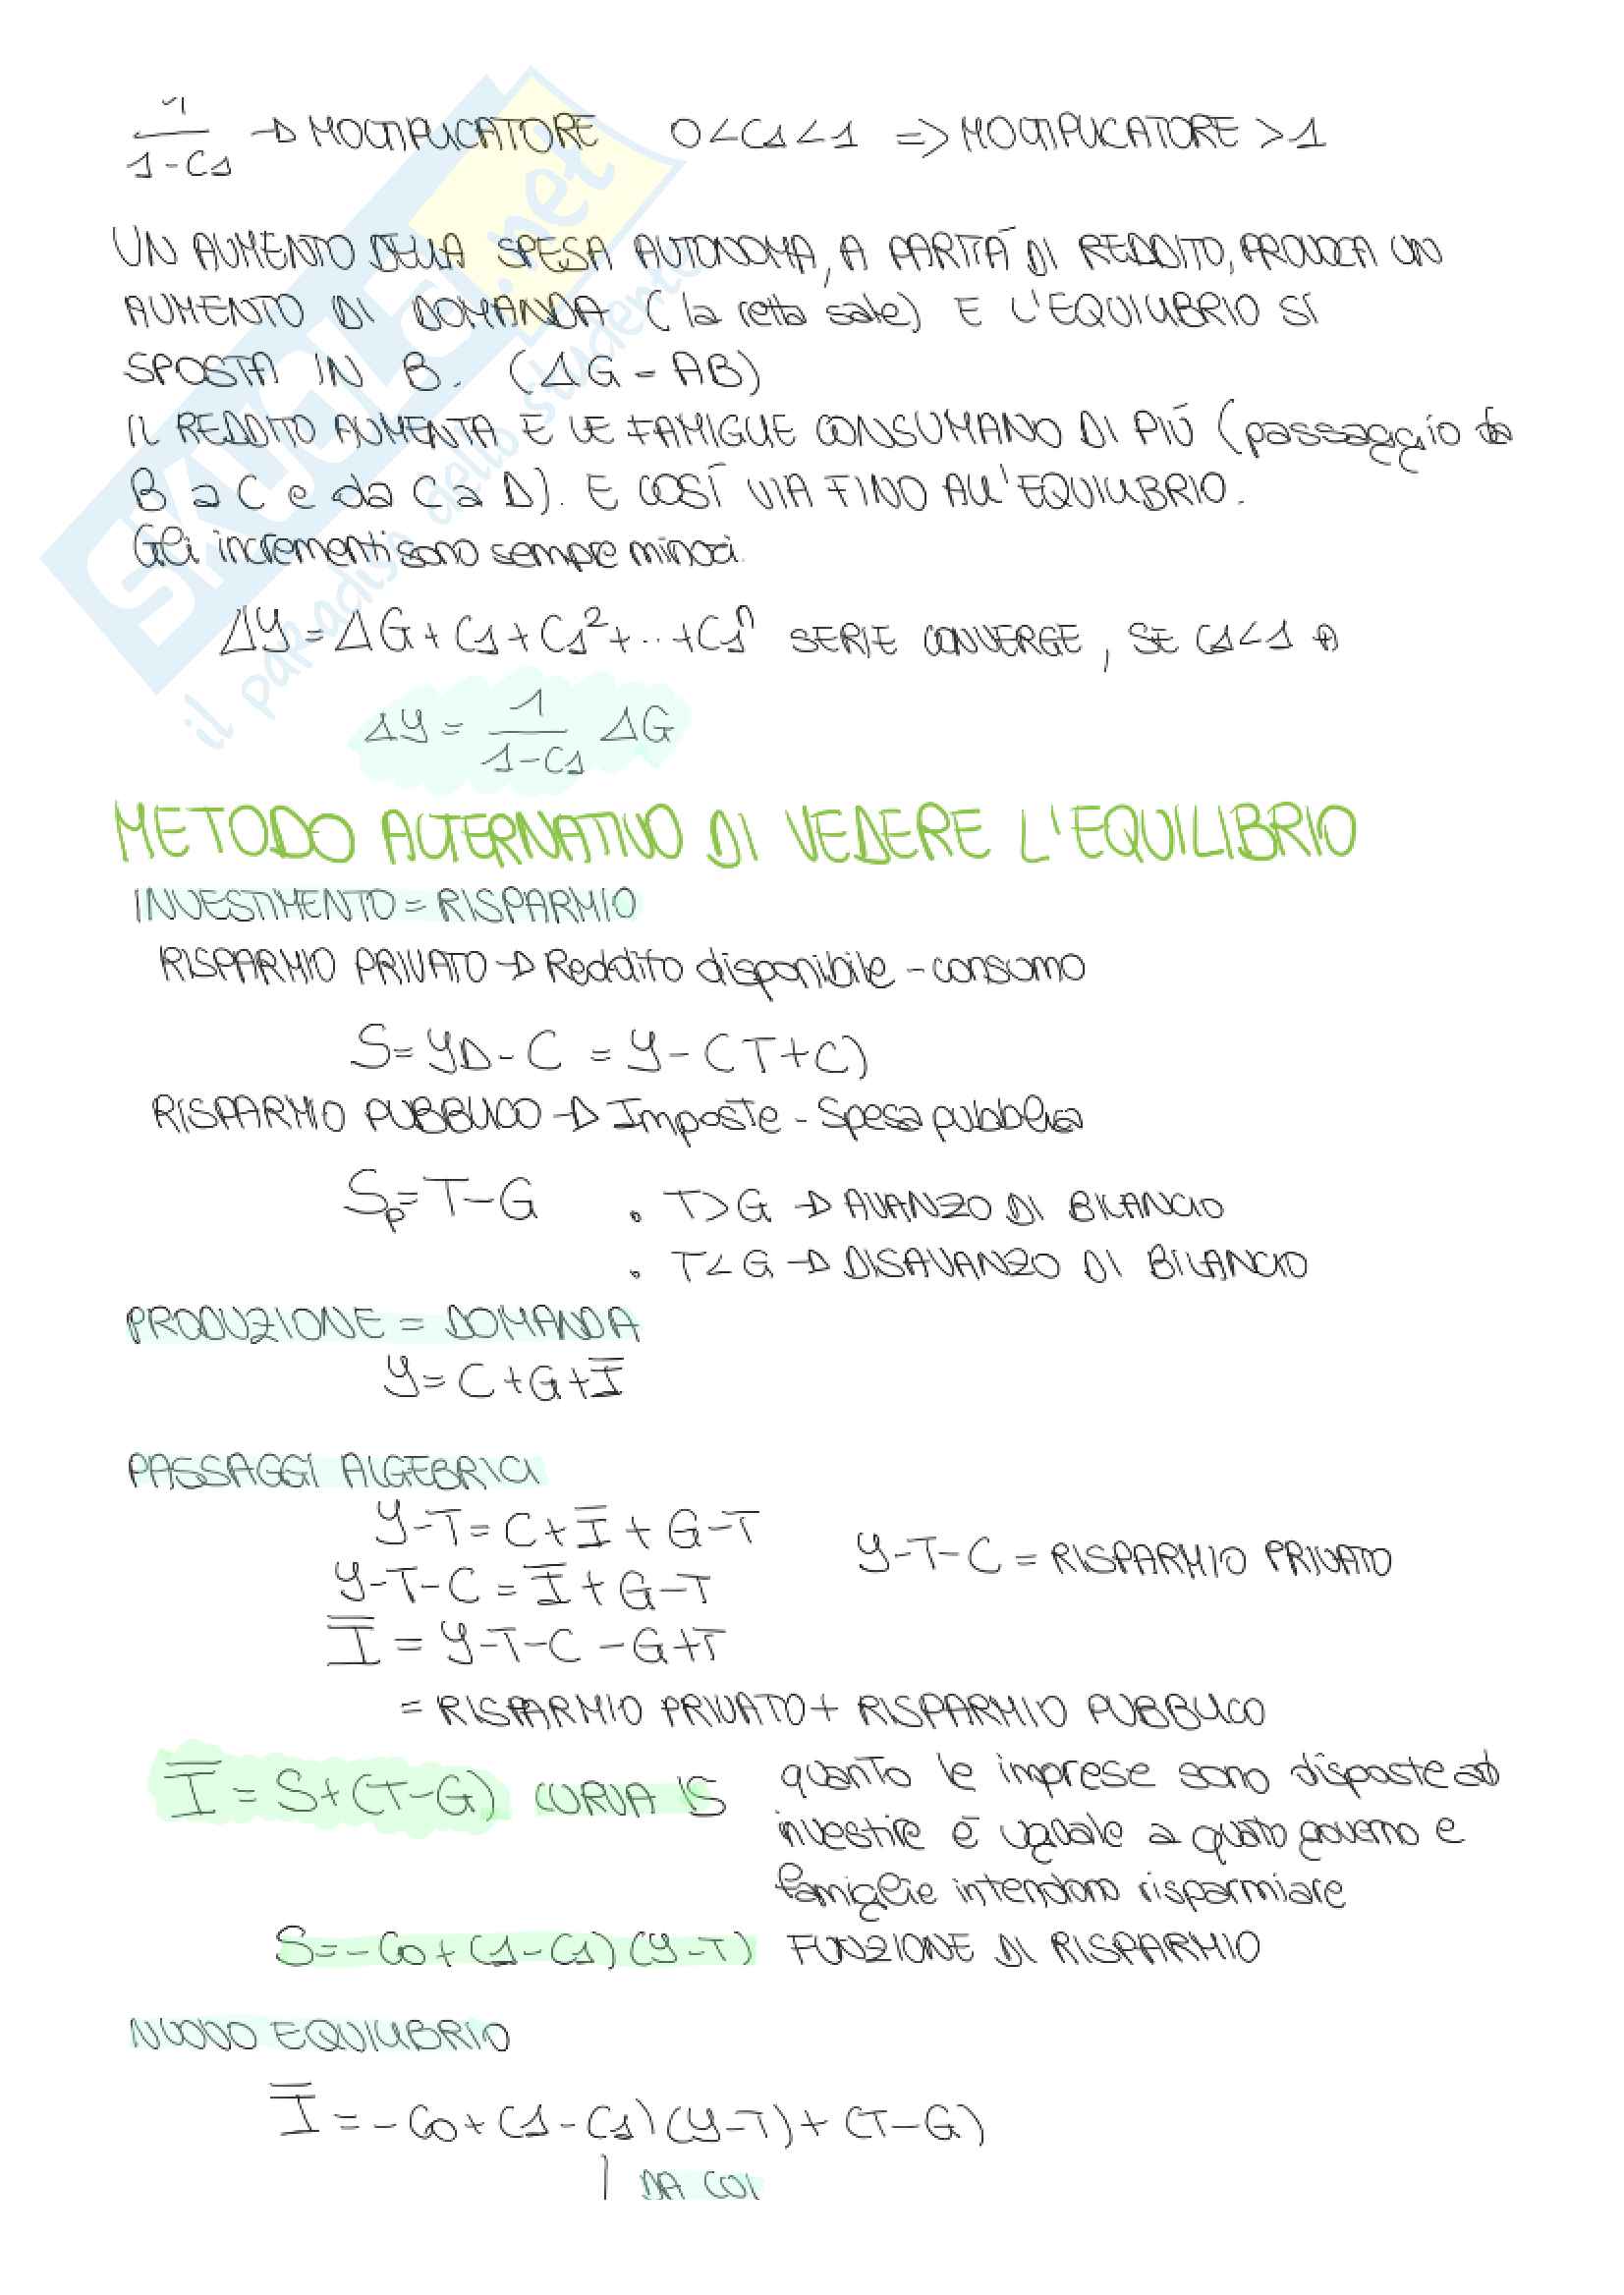 1/(1-C1) → MOLTIPLICATORE 0<C1<1 => MOLTIPLICATORE >1
UN AUMENTO DELLA SPESA AUTONOMA, A PARITÀ DI REDDITO, PROVOCA UN
AUMENTO DI DOMANDA (la retta sale) E L'EQUILIBRIO SI
SPOSTA IN B. (ΔG = AB)
IL REDDITO AUMENTA E LE FAMIGLIE CONSUMANO DI PIÙ (passaggio da
B a C e da C a D). E COSÌ VIA FINO ALL'EQUILIBRIO.
Gli incrementi sono sempre minori.
ΔY = ΔG + C1 + C1² + ... + C1ⁿ SERIE CONVERGE, SE C1<1 A
ΔY = 1/(1-C1) ΔG
METODO ALTERNATIVO DI VEDERE L'EQUILIBRIO
INVESTIMENTO = RISPARMIO
RISPARMIO PRIVATO → Reddito disponibile - consumo
S = YD - C = Y - (T+C)
RISPARMIO PUBBLICO → Imposte - Spesa pubblica
Sp = T - G . T>G → AVANZO DI BILANCIO
. T<G → DISAVANZO DI BILANCIO
PRODUZIONE = DOMANDA
Y = C + G + Ī
PASSAGGI ALGEBRICI
Y-T = C + Ī + G - T
Y-T-C = Ī + G - T Y-T-C = RISPARMIO PRIVATO
Ī = Y-T-C - G+T
= RISPARMIO PRIVATO + RISPARMIO PUBBLICO
Ī = S + (T-G) CURVA IS quanto le imprese sono disposte ad
investire è uguale a quato governo e
famiglie intendono risparmiare
S = -C0 + (1-C1)(Y-T) FUNZIONE DI RISPARMIO
NUOVO EQUILIBRIO
Ī = -C0 + (1-C1)(Y-T) + (T-G)
| DA CUI
SKUOLA.net
il paradiso dello studente